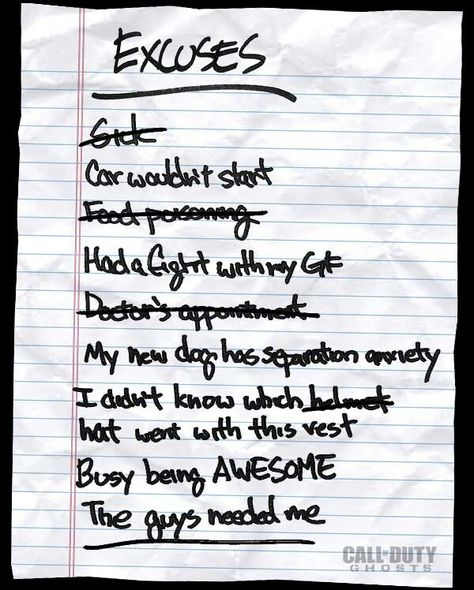 EXCUSES
Sick
Car wouldn't start
Food poisoning
Had a fight with my GF
Doctor's appointment
My new dog has separation anxiety
I didn't know which helmet
hat went with this vest
Busy being AWESOME
The guys needed me
CALL OF DUTY
GHOSTS